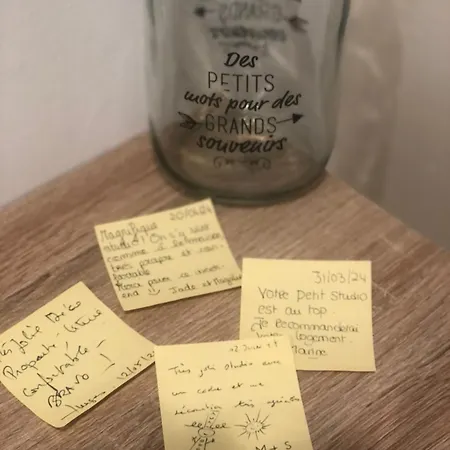 Des
PETITS
mots pour des
GRANDS
souvenirs
20/04/24
Magnifique
studio ! On s'y sent
comme à la maison
très propre et con-
fortable
Merci pour ce week-
end Jade et
31/03/24
Votre petit studio
est au top
Je Recommanderai
logement.
Très jolie Déco
Propreté - literie
Confortable -
BRAVO !
Très joli studio avec
un cadre et une
décoration très
M + S